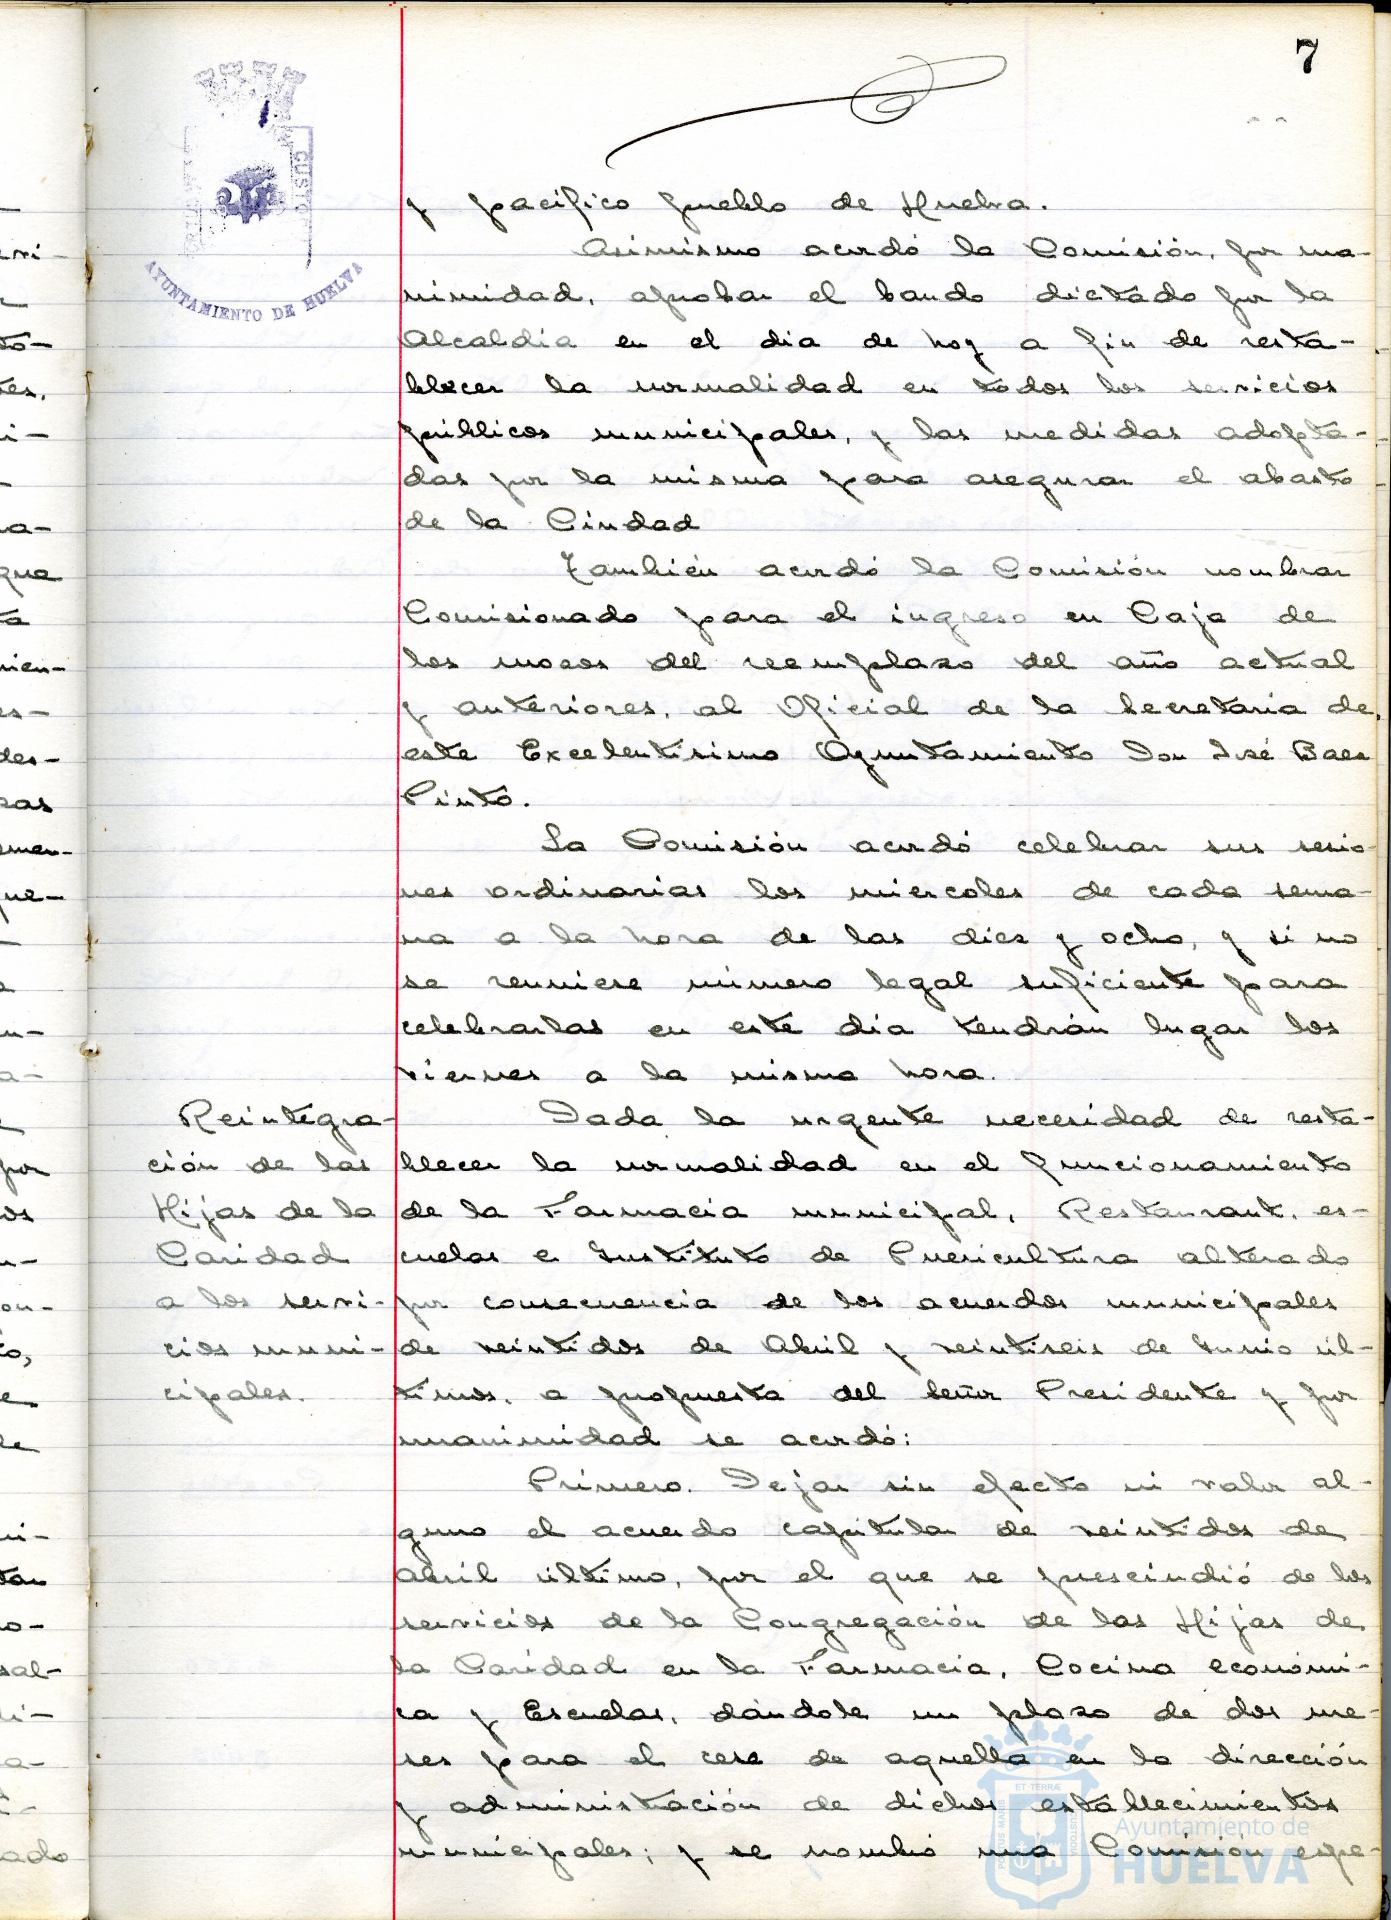 7
CUSTO
AYUNTAMIENTO DE HUELVA
y pacífico pueblo de Huelva.
Asimismo acordó la Comisión, por una-
nimidad, aprobar el bando dictado por la
Alcaldía en el día de hoy a fin de resta-
blecer la normalidad en todos los servicios
públicos municipales, y las medidas adopta-
das por la misma para asegurar el abasto
de la Ciudad
También acordó la Comisión nombrar
Comisionado para el ingreso en Caja de
los mozos del reemplazo del año actual
y anteriores, al Oficial de la Secretaría de
este Excelentísimo Ayuntamiento Don José Baez
Pinto.
La Comisión acordó celebrar sus sesio-
nes ordinarias los miercoles de cada sema-
na a la hora de las diez y ocho, y si no
se reuniese número legal suficiente para
celebrarlas en este día tendrán lugar los
viernes a la misma hora.
Reintegra-
ción de las
Hijas de la
Caridad
a los servi-
cios muni-
cipales.
Dada la urgente necesidad de resta-
blecer la normalidad en el funcionamiento
de la Farmacia municipal, Restaurant, es-
cuelas e Instituto de Puericultura alterado
por consecuencia de los acuerdos municipales
de veintidos de Abril y veintiseis de Junio úl-
timos, a propuesta del Señor Presidente y por
unanimidad se acordó:
Primero. Dejar sin efecto ni valor al-
guno el acuerdo capitular de veintidos de
Abril último, por el que se prescindió de los
servicios de la Congregación de las Hijas de
la Caridad en la Farmacia, Cocina económi-
ca y Escuelas, dándole un plazo de dos me-
ses para el cese de aquella en la dirección
y administración de dichos establecimientos
municipales; y se nombró una Comisión espe-
ET TERRÆ
PORTUS MARIS
CUSTODIA
Ayuntamiento de
HUELVA